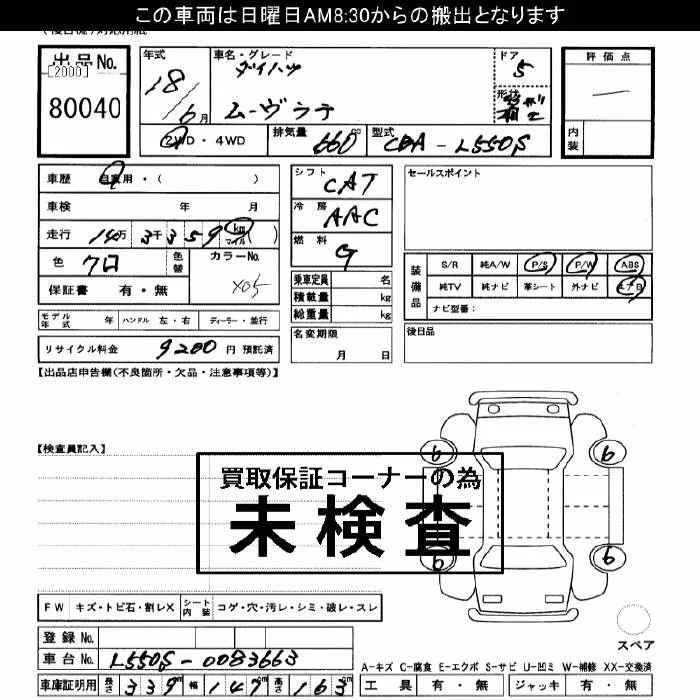 この車両は日曜日AM8:30からの搬出となります
出品No.
[2000]
80040
年式
18/6月
車名・グレード
ダイハツ
ムーヴラテ
ドア
5
形状
2WD・4WD
排気量 660 cc
型式 CBA-L550S
評価点
—
内装
車歴 自家用・( )
車検 年 月
走行 14万3千359 km マイル ( )
色 クロ
色替
カラーNo.
X05
保証書 有・無
シフト CAT
冷房 AAC
燃料 G
乗車定員 名
積載量 kg
総重量 kg
セールスポイント
装備品
S/R 純A/W P/S P/W ABS
純TV 純ナビ 革シート 外ナビ エアB
ナビ型番:
モデル年式 年 ハンドル 左・右 ディーラー・並行
名変期限
月 日
後日品
リサイクル料金 9200 円 預託済
【出品店申告欄(不良箇所・欠品・注意事項等)】
【検査員記入】
6 6
6 6
買取保証コーナーの為
未検査
FW キズ・トビ石・割レX シート内装 コゲ・穴・汚レ・シミ・破レ・スレ
登録No.
車台No. L550S-0083663
車庫証明用 長さ 339 cm 幅 147 cm 高さ 163 cm
スペア
A-キズ C-腐食 E-エクボ S-サビ U-凹ミ W-補修 XX-交換済
工具 有・無 ジャッキ 有・無